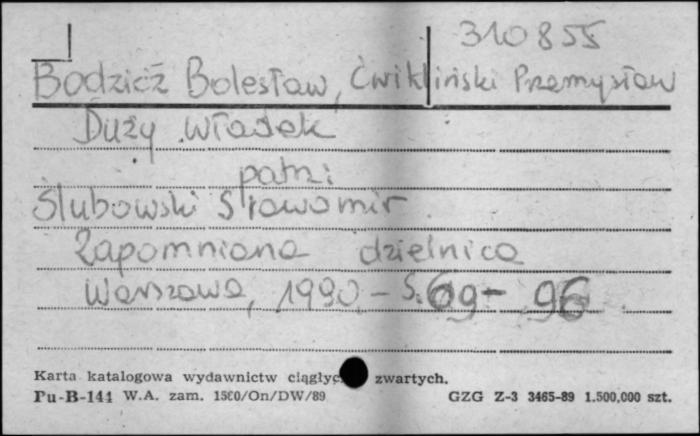 310855
Bodzicz Bolesław, Ćwikliński Przemysław
Duży Władek
patrz:
Ślubowski Sławomir
Zapomniana dzielnica
Warszawa, 1990, - S. 69 - 96
Karta katalogowa wydawnictw zwartych.
Pu-B-144 W.A. zam. 1500/On/DW/89 GZG Z-3 3465-89 1.500,000 szt.